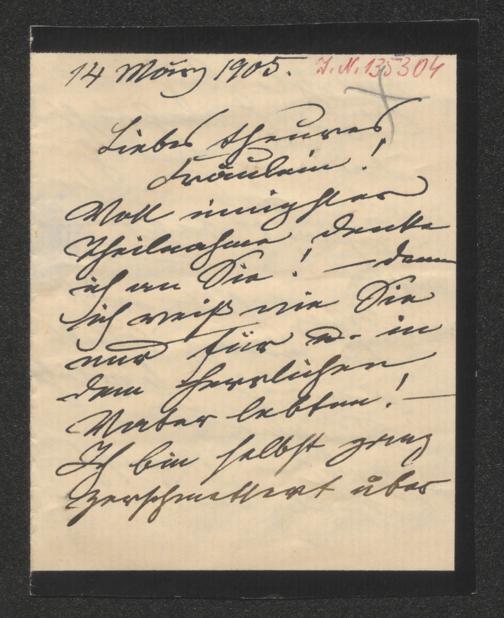 14 März 1905. I. N. 135304
Liebes theures
Fräulein!
Voll innigster
Theilnahme denke
ich an Sie! — denn
ich weiß wie Sie
nur für u. in
dem herrlichen
Vater lebten! —
Ich bin selbst ganz
zerschmettert über